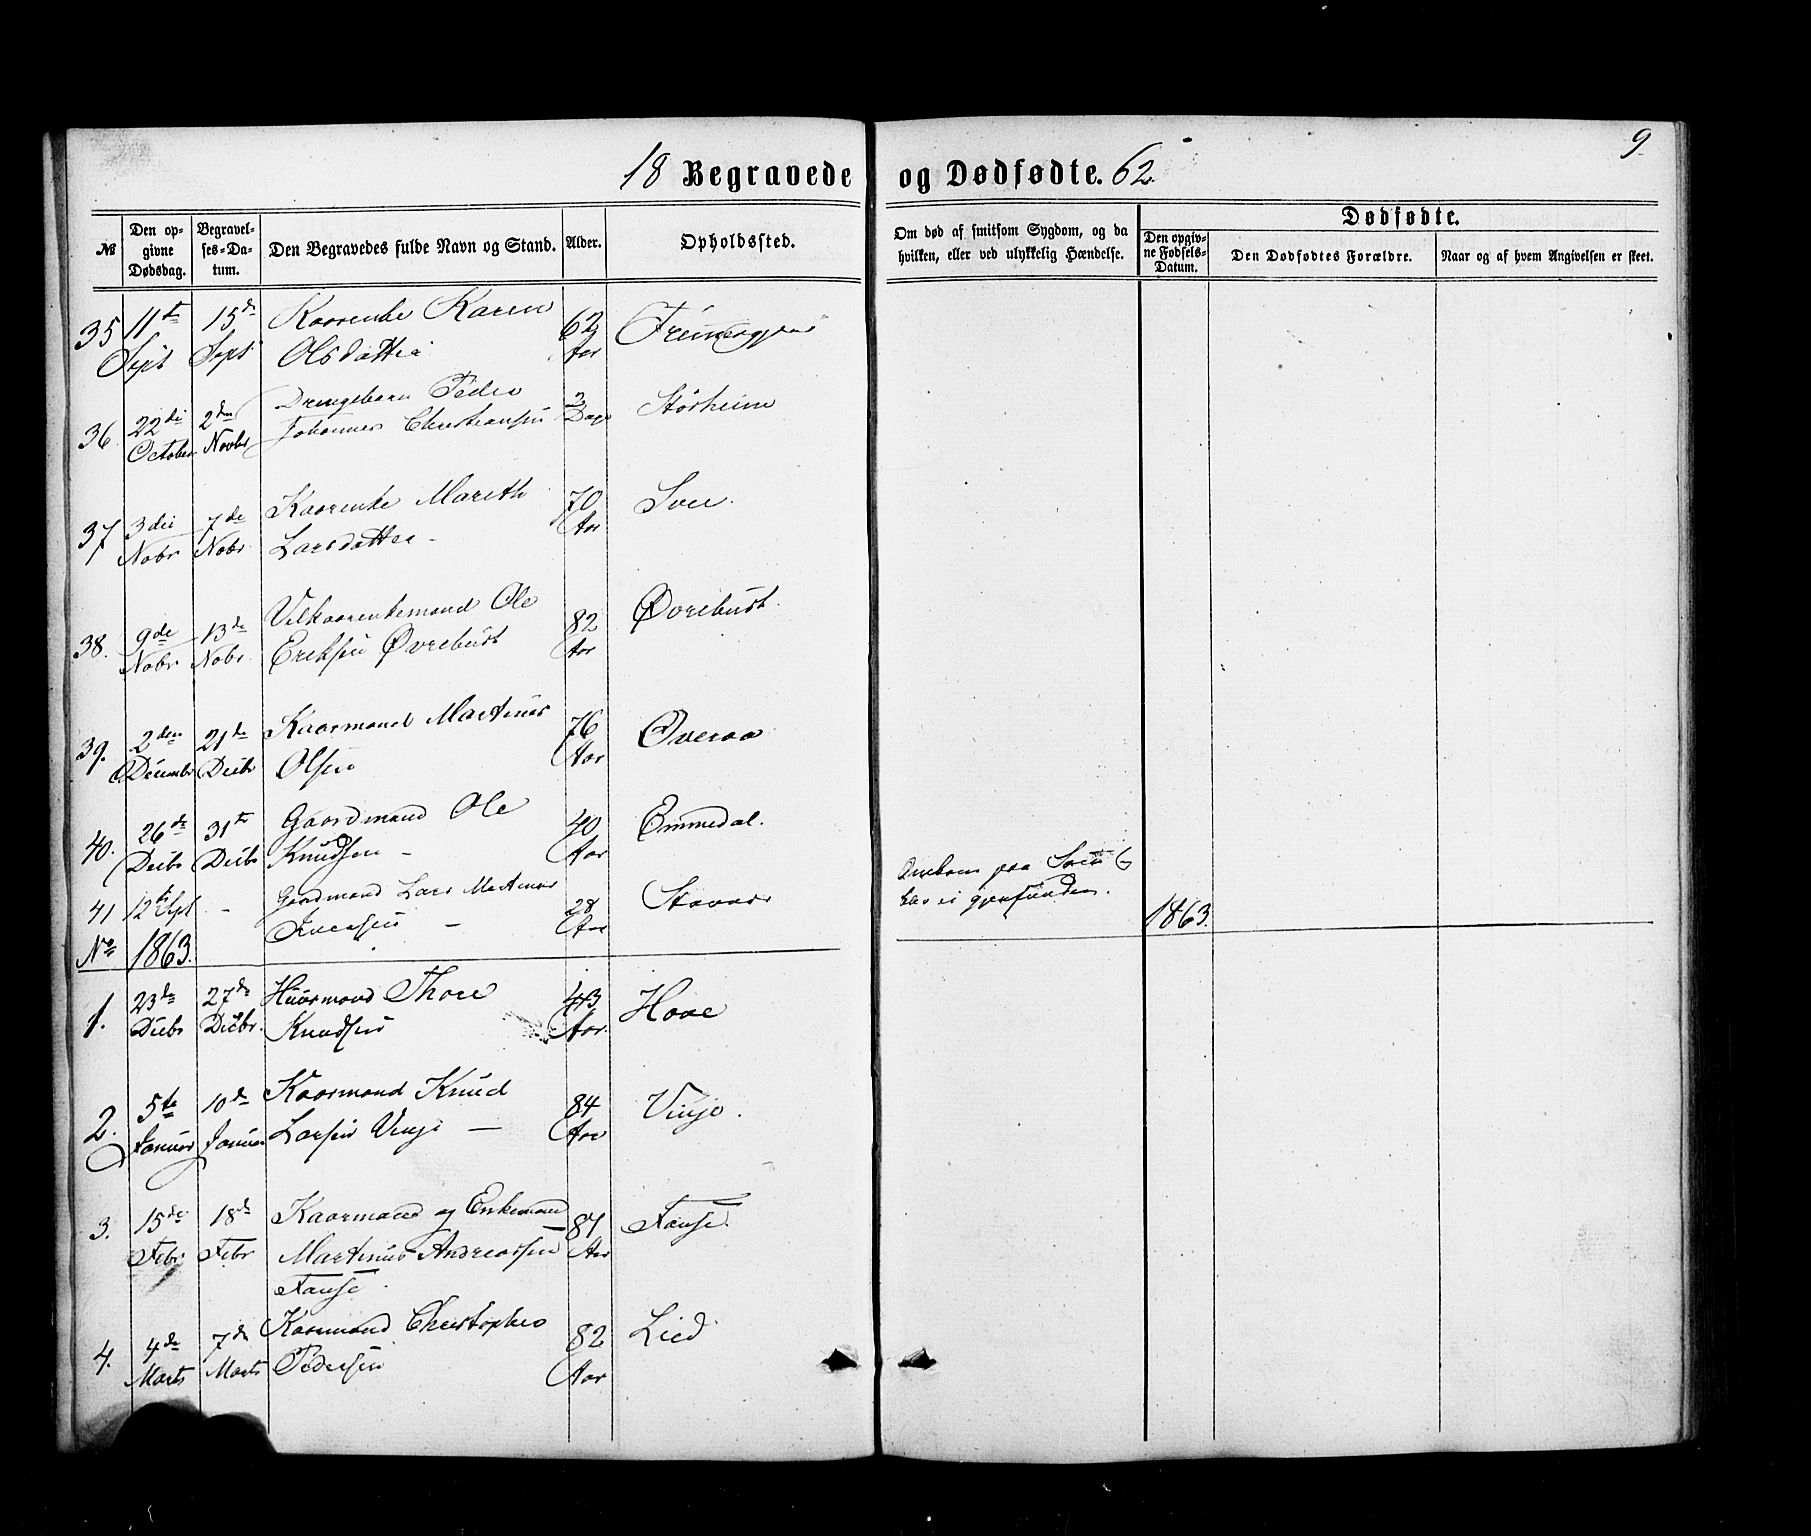 9
18 Begravede og Dødfødte. 62.
№
Den opgivne Dødsdag.
Begravelses-Datum.
Den Begravedes fulde Navn og Stand.
Alder.
Opholdssted.
Om død af smitsom Sygdom, og da hvilken, eller ved ulykkelig Hændelse.
Dødfødte.
Den opgivne Fødsels-Datum.
Den Dødfødtes Forældre.
Naar og af hvem Angivelsen er skeet.
35 11te 15de Kaarenke Karen 62
Sept Sept Olsdatter Aar
36. 22de 2den Drengebarn Peder 2 Störheim
October Novbr Johannes Christiansen Dage
37 3die 7de Kaarenke Mareth 70 Sve.
Nobr Nobr Larsdatter - Aar
38. 9de 13de Vilkaarenkemand Ole 82 Øvrebust.
Nobr Nobr Eriksen Øvrebust Aar
39. 2den 21de Kaarmand Martinus 76 Øveraa
Decembr Decbr Olsen Aar
40. 26de 31te Gaardmand Ole 40 Emmedal.
Decbr Decbr Knudsen - Aar
41 12te Sept - Gaardmand Lars Martinus 28
Iversen - Aar
Omkom paa
ei gjenfunden.
No 1863. 1863.
1. 23de 27de Huusmand Thore 43 Hove
Decbr Decbr. Knudsen Aar
2. 5te 10de Kaarmand Knud 84 Vinje.
Januar Januar Larsen Vinje — Aar
3. 15de 18de Kaarmand og Enkemand Fause.
Febr Febr Martinus Andreassen Aar
Fause.
4. 4de 7de Kaarmand Christopher 82 Lied
Marts Marts Pedersen Aar